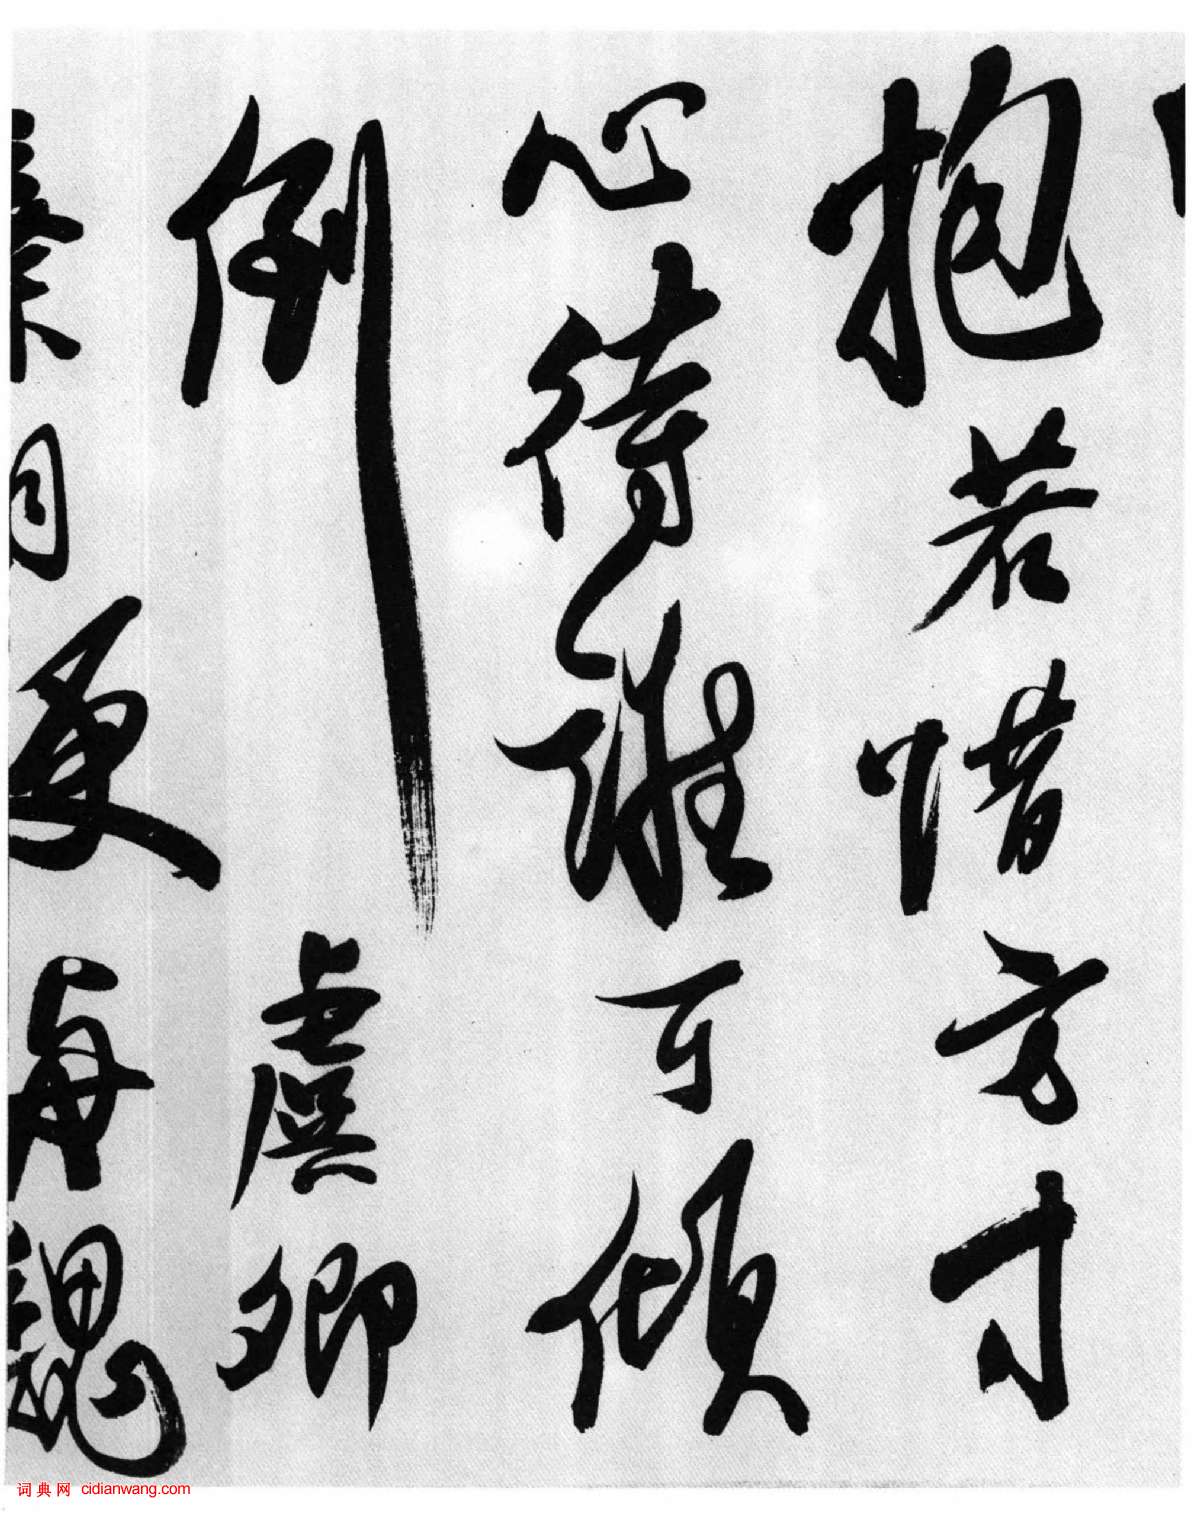 抱若惜方寸
心待誰可傾
倒虞卿
棄相更再魏
词典网 cidianwang.com